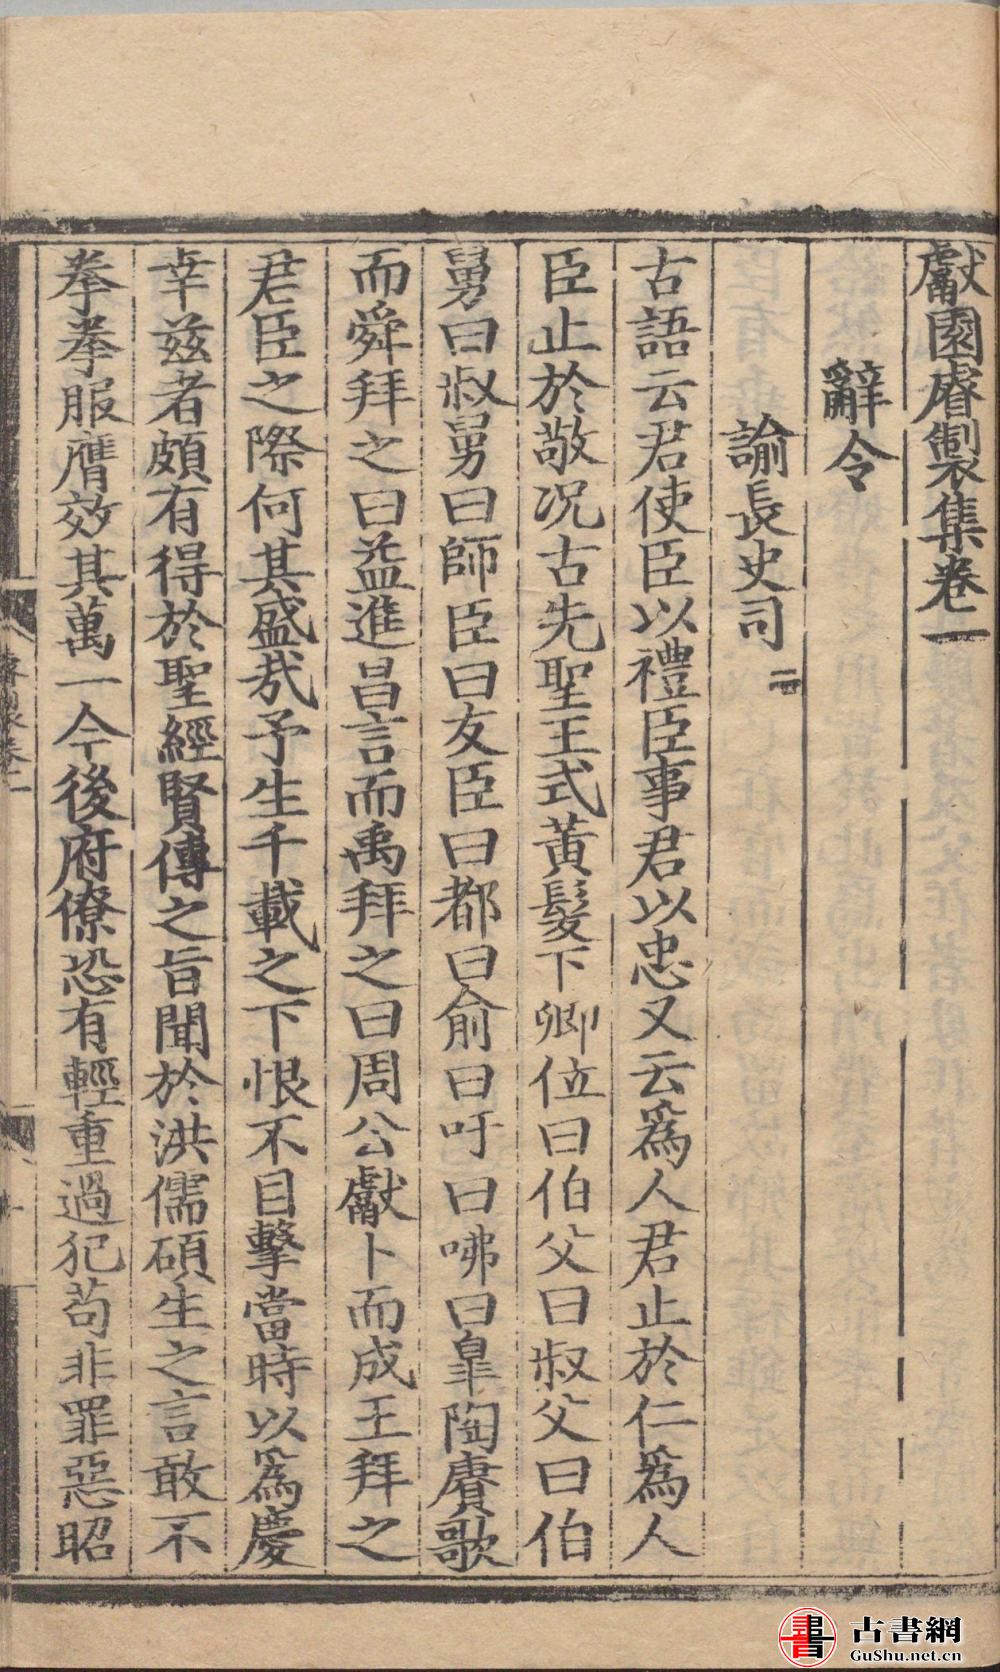 獻園睿製集卷一
辭令
諭長史司二十
古語云君使臣以禮臣事君以忠又云爲人君止於仁爲人
臣止於敬况古先聖王式黃髮下卿位曰伯父曰叔父曰伯
舅曰叔舅曰師臣曰友臣曰都曰俞曰吁曰咈曰皐陶賡歌
而舜拜之曰益進昌言而禹拜之曰周公獻卜而成王拜之
君臣之際何其盛哉予生千載之下恨不目擊當時以爲慶
幸兹者頗有得於聖經賢傳之旨聞於洪儒碩生之言敢不
拳拳服膺效其萬一今後府僚恐有輕重過犯苟非罪惡昭
睿製卷一
古書網
GuShu.net.cn